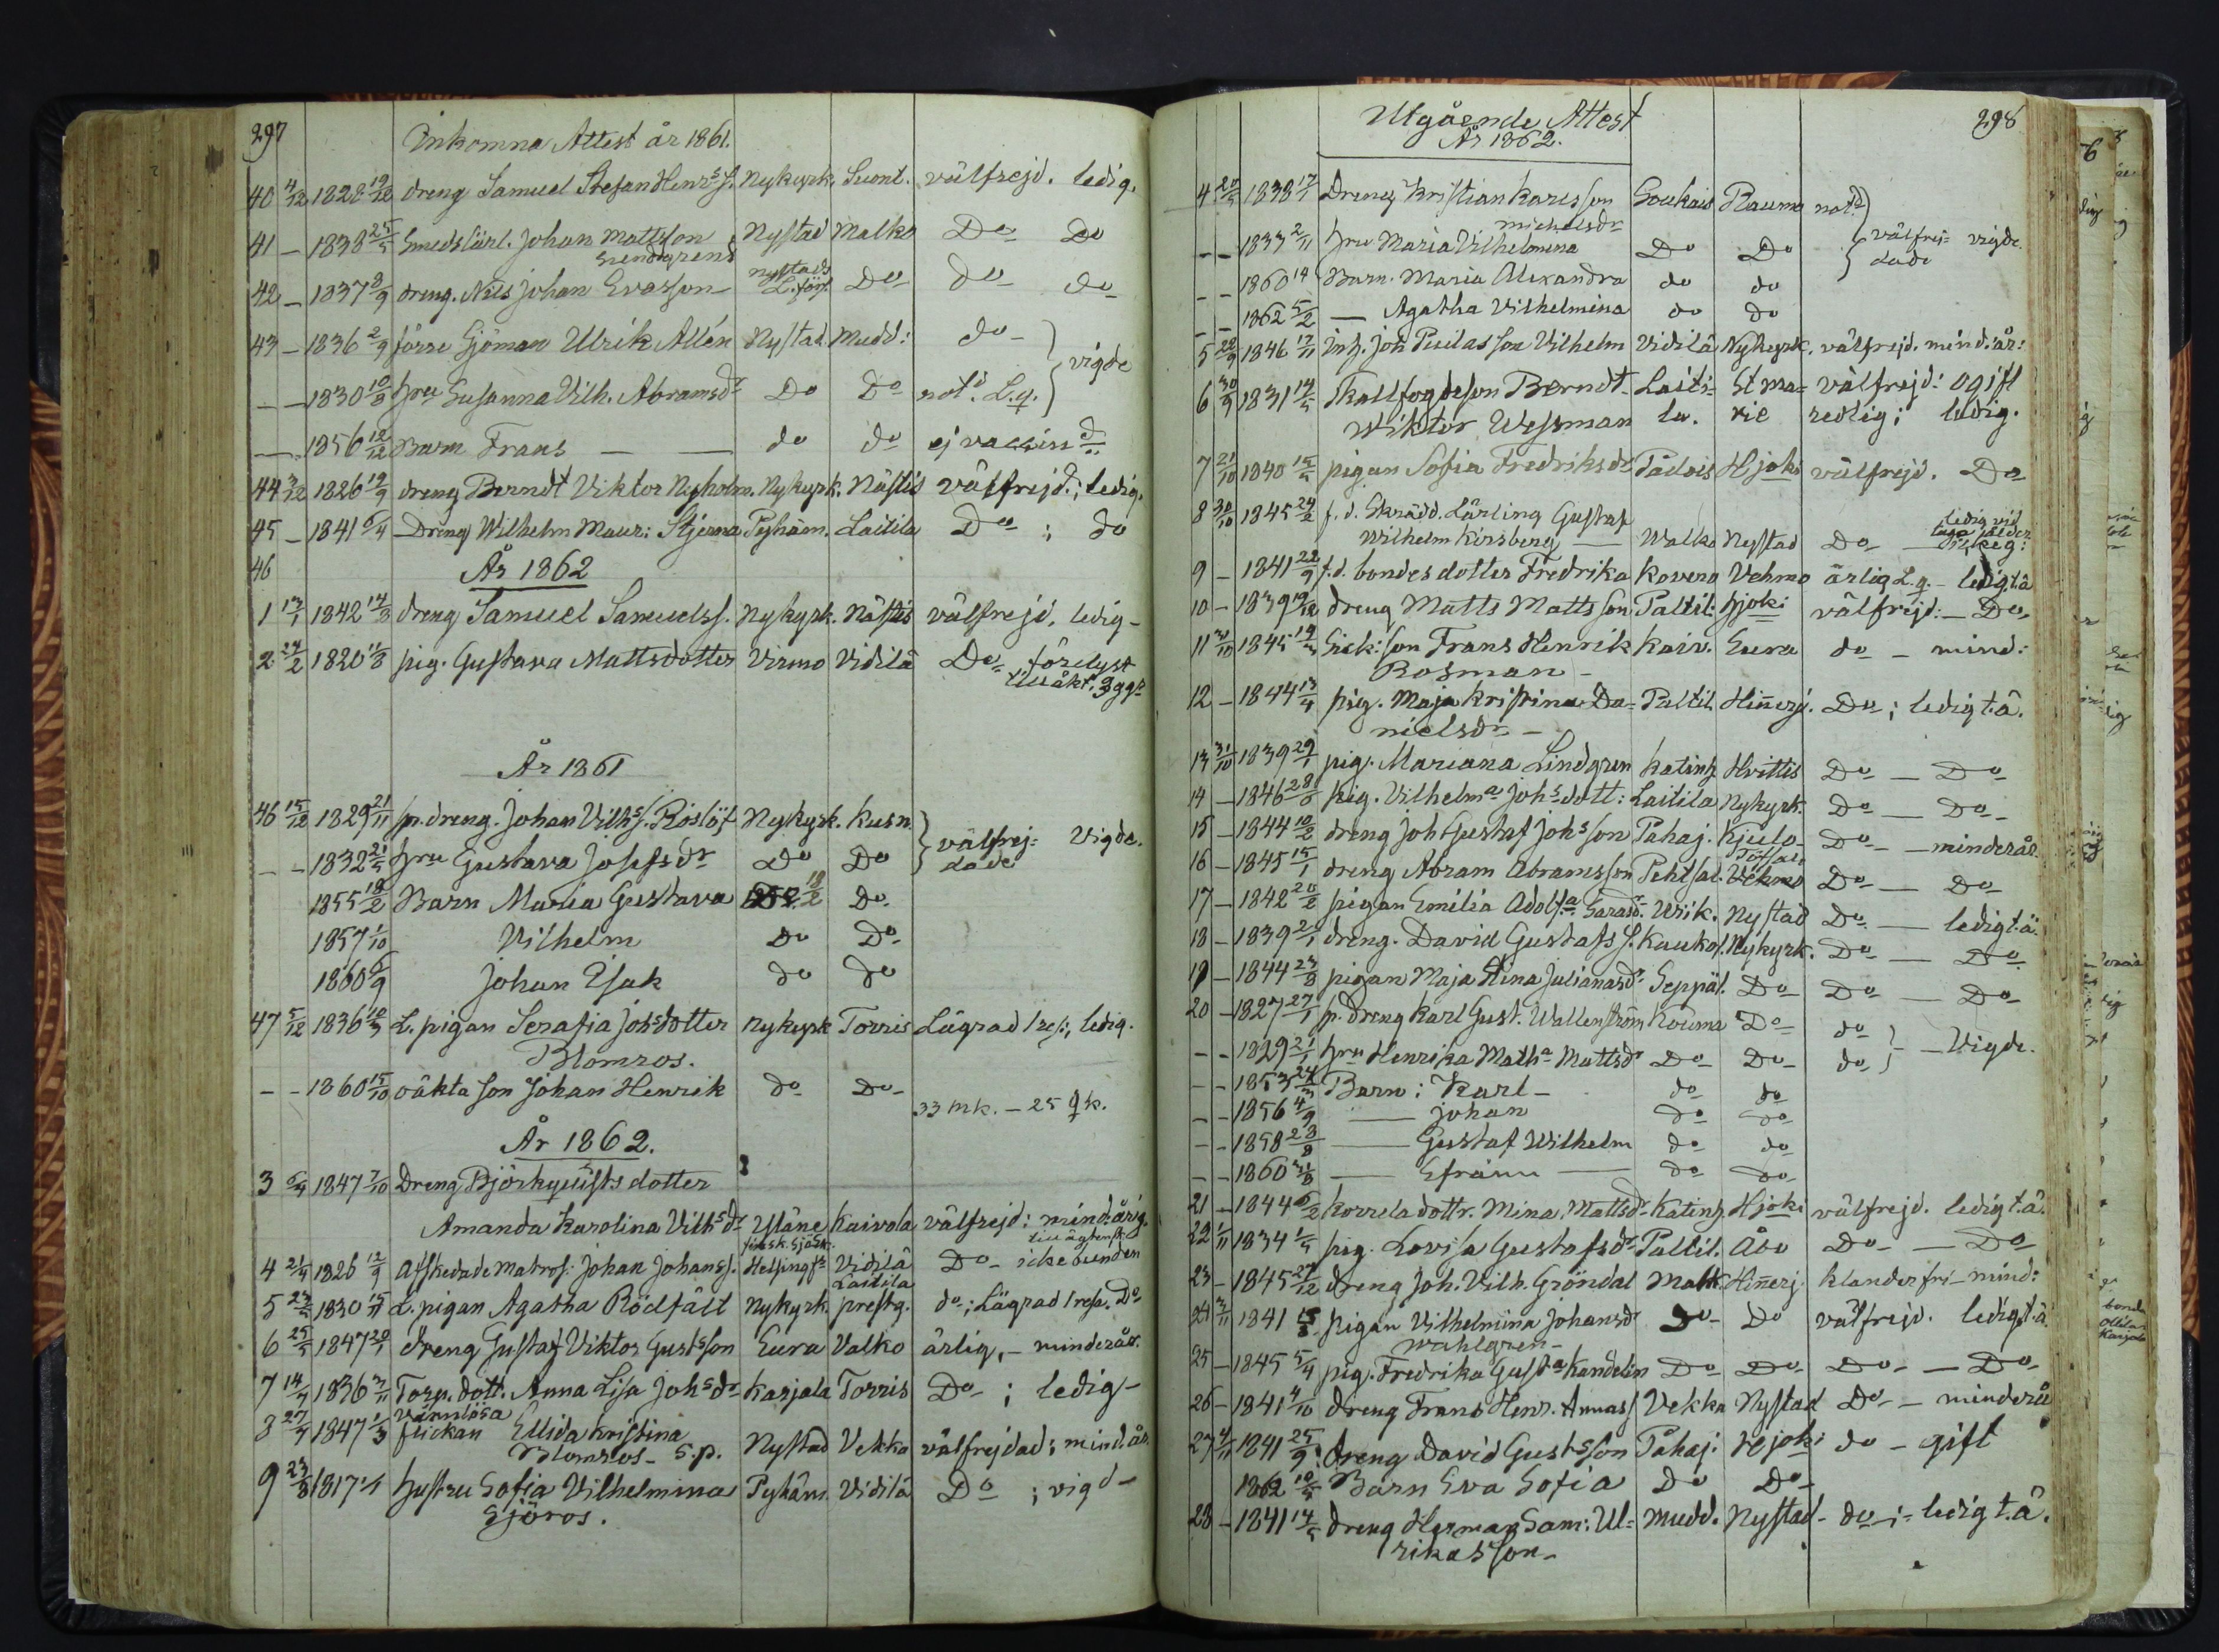 297
Inkomna Attest år 1861.
40 4/12 1828 19/12 dreng Samuel Stefan Henrs S. Nykyrk. Suont. välfrejd. ledig.
41 – 1838 25/5 Smedslärl. Johan Mattsson Nystad Malko Do Do
42 – 1837 3/9 dreng. Nils Johan Evasson Nystads L. förs. Do do do
43 – 1836 2/9 förre Sjöman Ulrik Allén Nystad. Mudd: do
vigde
– – 1830 10/8 hru Susanna Vilh. Abramsdr Do Do notd. L.g.
– 1856 12/12 Barn Frans – – do do ej vaccind
44 3/12 1826 19/9 dreng Berndt Viktor Nyholm. Nykyrk. Nästis välfrejd.; ledig.
45 – 1841 6/4 Dreng Wilhelm Maur: Stjerna Pyhäm. Laitila Do ; do
46 År 1862
1 13/1 1842 14/3 dreng Samuel Samuelss. Nykyrk. Nästis välfrejd, ledig –
2 24/2 1820 11/8 pig. Gustava Mattsdotter Virmo Vidilä Do förelyst
till äkt. 3 ggr
År 1861
46 15/12 1829 21/11 sp. dreng. Johan Vilhs S. Röslöf Nykyrk. Kusn.
– – 1832 21/5 hru Gustava Josefsdr Do Do välfrej= dade Vigde.
1855 18/2 Barn Maria Gustava 18/2 Do
1857 1/10 Vilhelm Do Do
1860 6/9 Johan Isak do do
47 5/12 1836 10/3 L. pigan Serafia Johsdotter Nykyrk Torris Lägrad 1 res:, ledig.
Blomros.
– – 1860 15/10 oäkta son Johan Henrik do Do
33 mk. – 25 qk.
År 1862.
3 6/4 1847 7/10 Dreng Björkquists dotter
Amanda Karolina Vilhsdr Yläne Kaivola välfrejd: mind:årig.
4 21/4 1826 12/9 Afskedade Matros: Johan Johanss. Helsingfs Vidilä Do – icke bunden
5 23/4 1830 15/11 L. pigan Agatha Rödfält Nykyrk. Laitila prestg. do; Lägrad 1 resa. Do
6 25/4 1847 20/1 dreng Gustaf Viktor Gustsson Eura Valko ärlig, – minderår.
7 14/4 1836 3/11 Torp. dott. Anna Lisa Johsdr Karjala Torris Do ; ledig –
8 27/4 1847 1/3 värnlösa flickan Elida Kristina
Blomros – S.p. Nystad Vekka välfrejdad; mind.år.
9 23/8 1817 Hustru Sofia Vilhelmina Pyhäm. Vidilä Do ; vigd –
Sjöros.
298
Utgående Attest
År 1862.
4 20/5 1838 17/1 Dreng Kristian Karlsson Soukais Rauma notd
michelsdr
– – 1833 2/11 hru Maria Vilhelmina Do Do välfrej= dade vigde.
– – 1860 14 Barn. Maria Alexandra do do
– – 1862 5/2 – Agatha Vilhelmina do do
5 22/9 1846 17/11 Inh. Joh Piilasson Vilhelm Vidilä Nykyrk. välfrejd. mind:år:
6 30/9 1831 14/5 Skallfogdeson Berndt Laiti= St Ma= välfrejd: ogift
Wiktor Wessman la. rie redlig; ledig.
7 21/10 1840 15/5 pigan Sofia Fredriksdr Palois Hjoki välfrejd. Do
8 30/10 1845 24/2 f.d. Skrädd. Lärling Gustaf
Wilhelm Kirsberg – Walko Nystad Do
9 – 1841 22/9 f.d. bondes dotter Fredrika Kovero Vehmo ärlig L.g. – ledigt.ä
10 – 1839 19/12 dreng Matts Mattsson Paltil. Hjoki välfrejd: – Do
11 31/10 1845 19/3 Sick:son Frans Henrik Kaiv. Eura do – mind:
Rosman –
12 – 1844 13/4 pig. Maja Kristina Da= Paltil. Hinnerj. Do ; ledig t.ä.
nielsdr –
13 31/10 1839 29/1 pig. Mariana Lindgren Katinh. Hvittis Do – Do
14 – 1846 28/6 pig. Vilhelma Johs dott: Laitila Nykyrk. Do – Do
15 – 1844 10/2 dreng Joh Gustaf Johsson Pahaj. Kjulo Do – minderår.
16 – 1845 15/1 dreng Abram Abramsson Pehtsal. Töfsala Do – Do
17 – 1842 20/2 pigan Emilia Adolfa Sarasdr Wiik. Nystad Do – ledigt.ä.
18 – 1839 2/1 dreng. David Gustafs S. Kaukol. Nykyrk. Do – Do
19 – 1844 23/8 pigan Maja Stina Julianasdr Seppäl. Do Do – Do
20 – 1827 27/1 sp. dreng Karl Gust. Wallenström Kouma Do do
– – 1829 21/1 hru Henrika Matha Mattsdr Do Do do – Vigde.
– – 1853 24/3 Barn: Karl – do do
– – 1856 4/9 – Johan do do
– – 1858 23/8 – Gustaf Wilhelm do do
– – 1860 31/8 – Efraim – do do
21 – 1844 6/2 Korrela dottr. Mina Mattsdr Katinh. Hjoki välfrejd. ledigt.ä.
22 1/11 1834 1/4 pig. Lovisa Gustafsdr Paltil. Åbo Do – Do
23 – 1845 27/12 dreng Joh. Vilh. Gröndal Malk. Hinnerj. klanderfri – mind:
24 3/11 1841 15/3 pigan Vilhelmina Johansdr Do Do välfrejd. ledigt.ä.
Wahlgren –
25 – 1845 5/4 pig. Fredrika Gusta Kandelin Do Do Do – Do
26 – 1841 4/10 dreng Frans Henr. Annas S Vekka Nystad Do – minderå
27 4/11 1841 25/9 dreng David Gustsson Pahaj: Hjoki do – gift
1862 10/5 Barn Eva Sofia Do Do
28 – 1841 14/5 dreng Herman Sam: Ul= Mudd. Nystad – do ; – ledig t.ä.
rikasson –